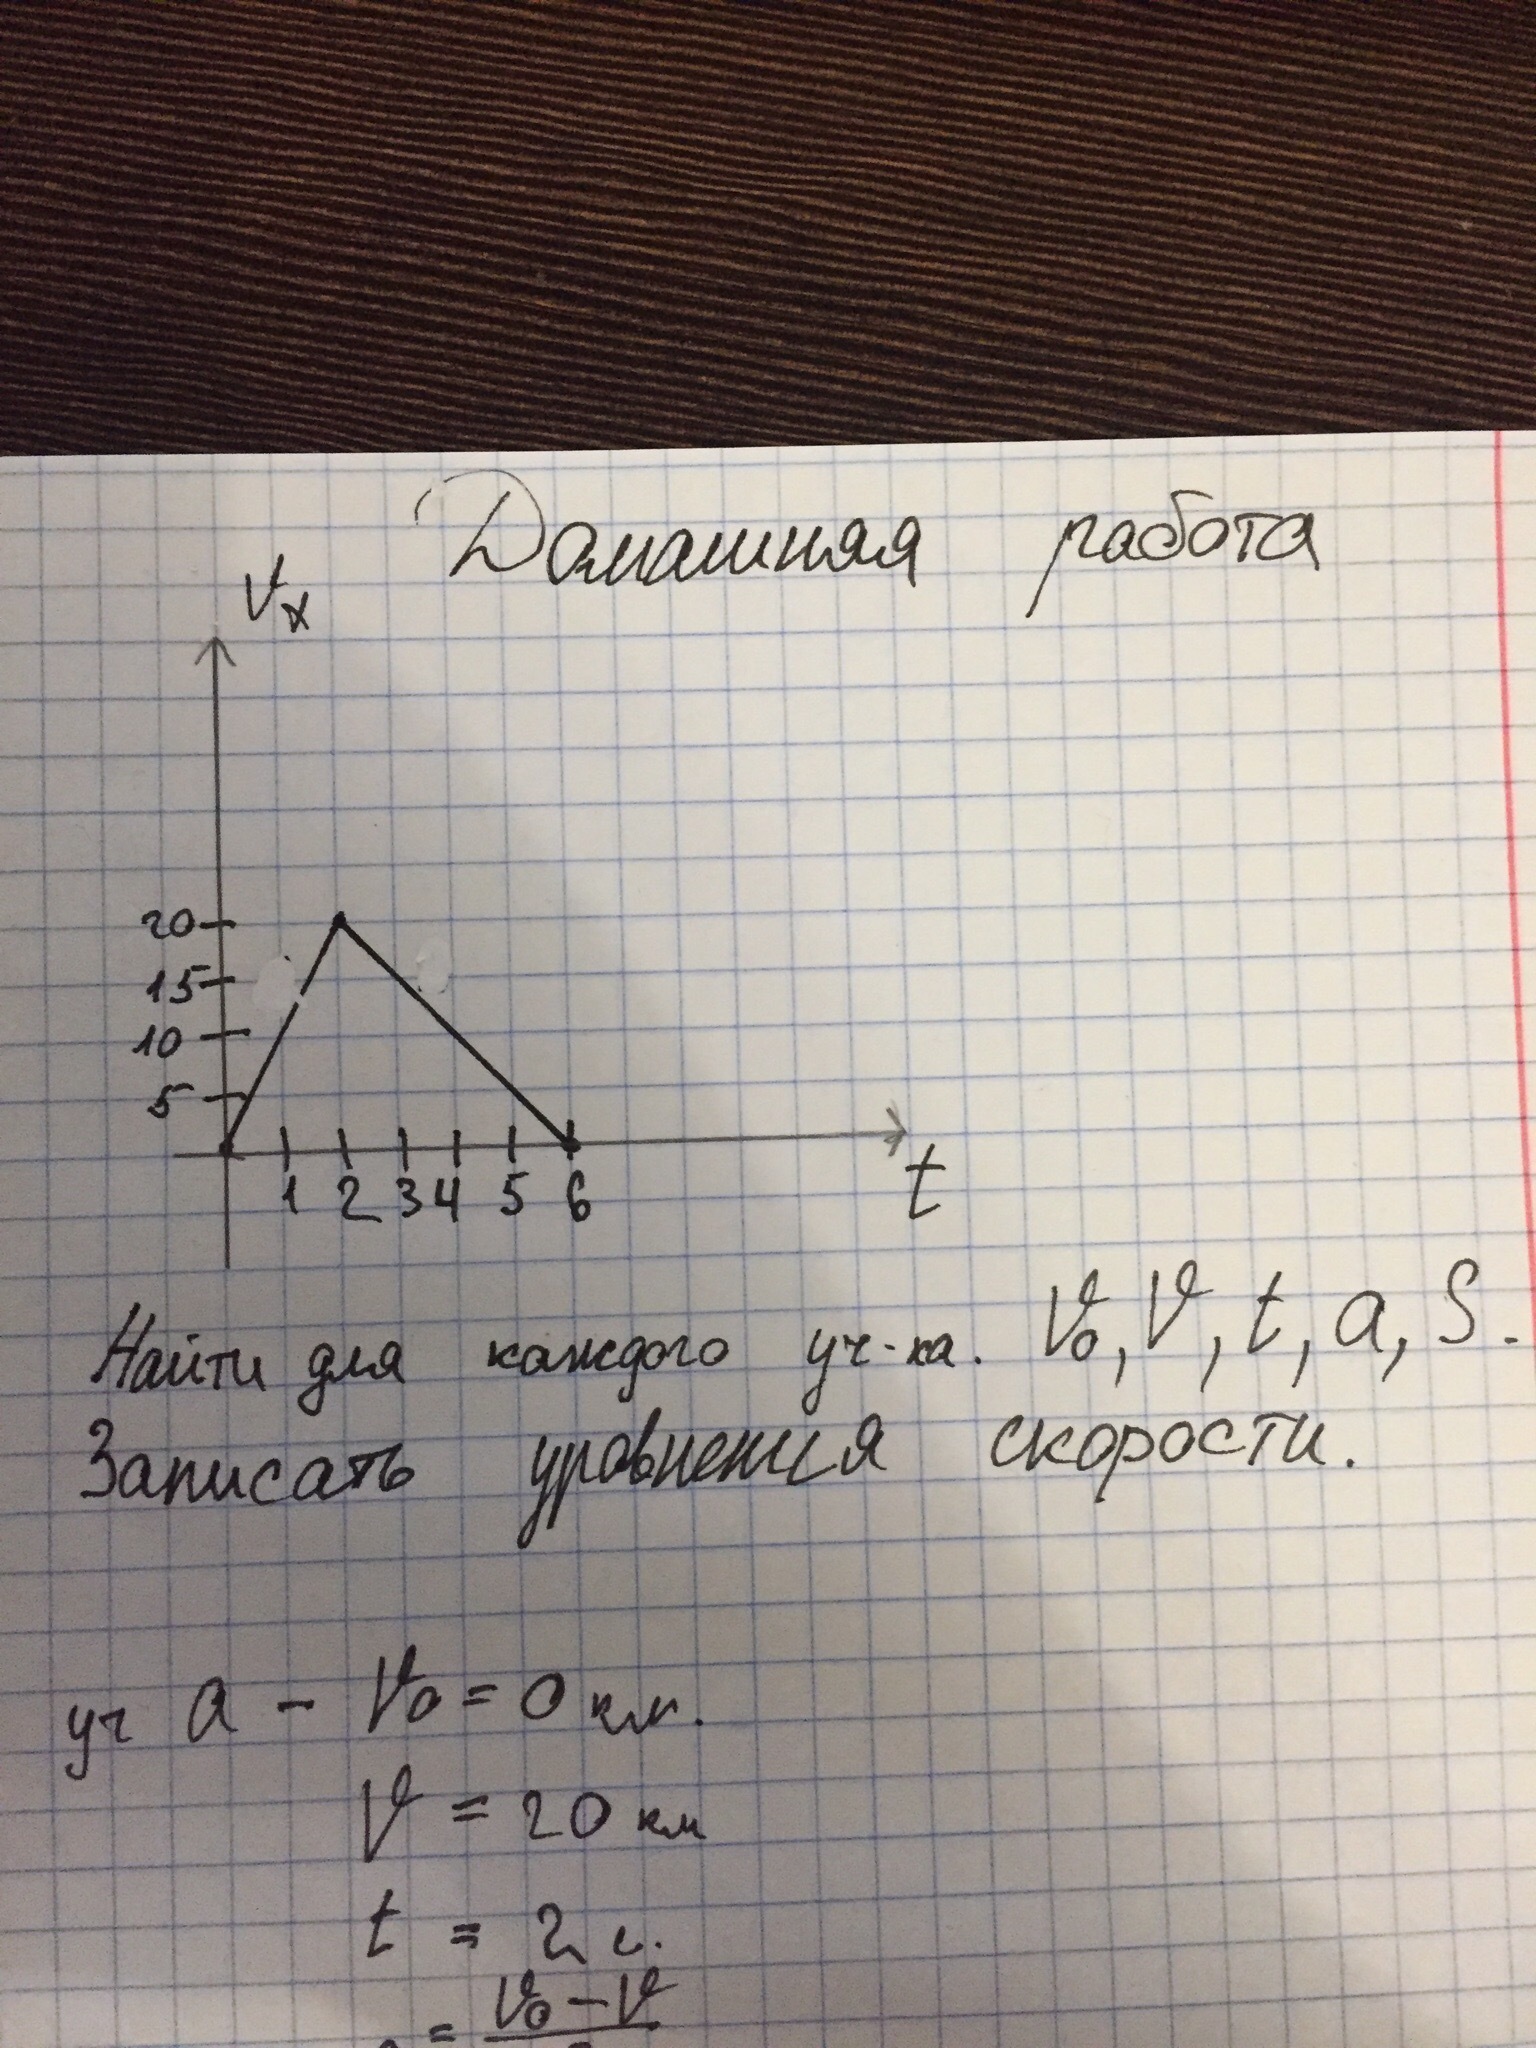 Домашняя работа
Vx
20
15
10
5
1 2 3 4 5 6
t
Найти для каждого уч-ка. V₀, V, t, a, S.
Записать уравнения скорости.
уч a - V₀ = 0 км.
V = 20 км
t = 2 с.
= V₀ - V